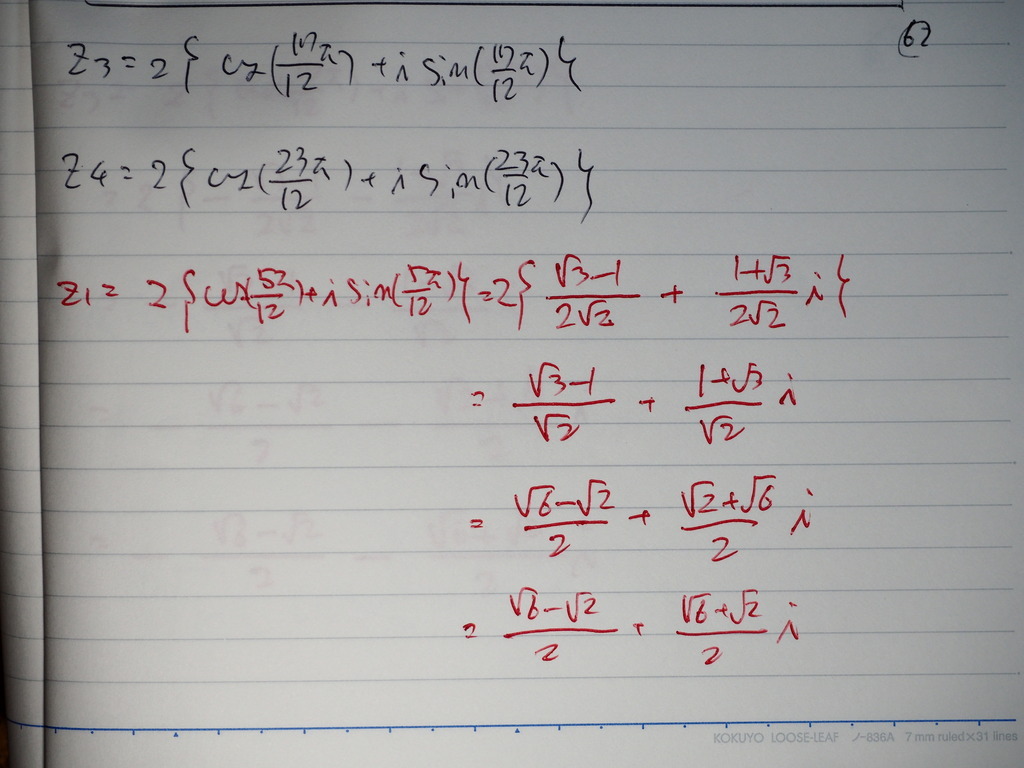 62
Z3 = 2 { cos(17π/12) + i sin(17π/12) }
Z4 = 2 { cos(23π/12) + i sin(23π/12) }
Z1 = 2 { cos(5π/12) + i sin(5π/12) } = 2 { (√3-1)/(2√2) + (1+√3)/(2√2) i }
= (√3-1)/√2 + (1+√3)/√2 i
= (√6-√2)/2 + (√2+√6)/2 i
= (√6-√2)/2 + (√6+√2)/2 i
KOKUYO LOOSE-LEAF ノ-836A 7 mm ruled×31 lines